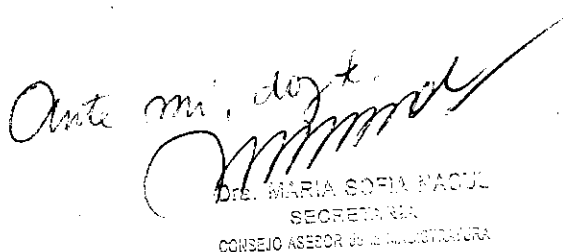 Ante mi, doy fe.
Dra. MARIA SOFIA NACUL
SECRETARIA
CONSEJO ASESOR DE LA MAGISTRATURA